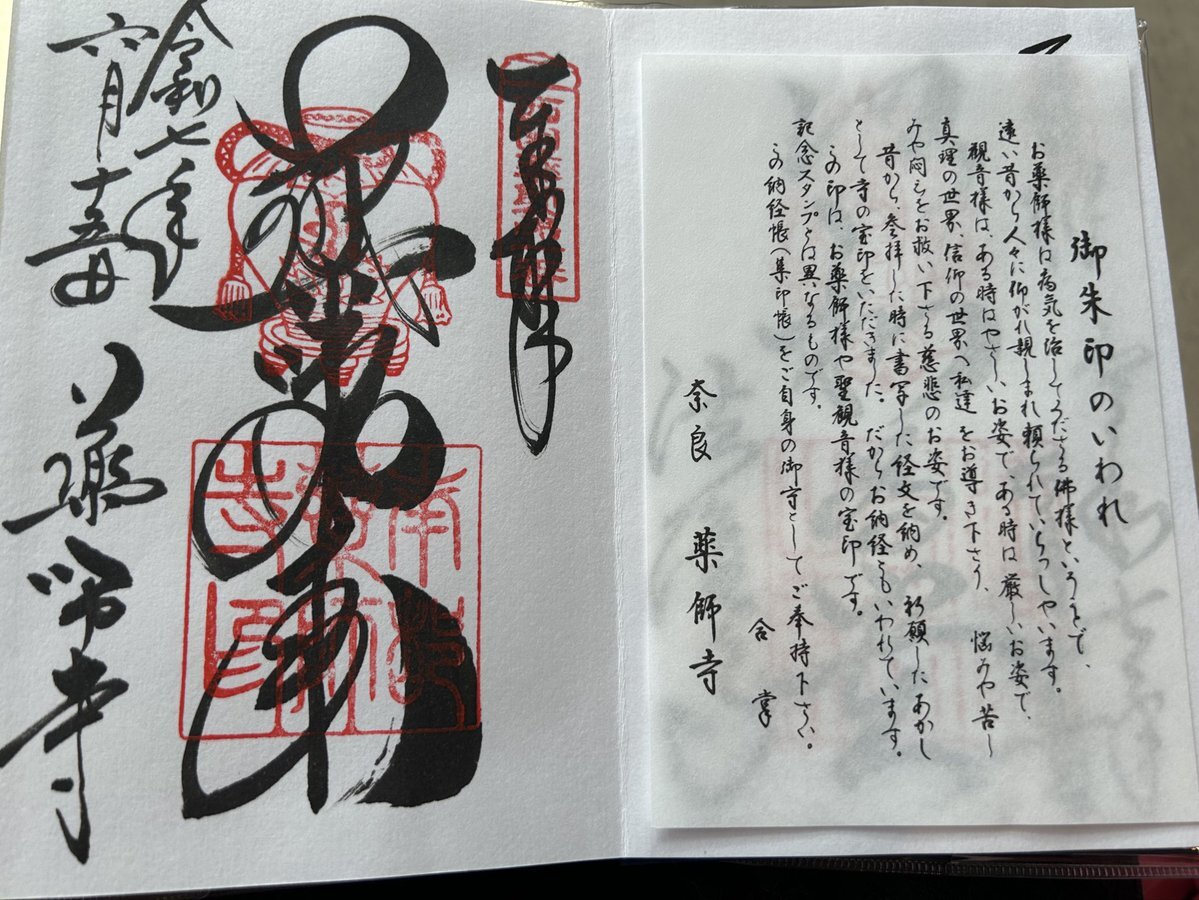 御朱印のいわれ
お薬師様は病気を治してくださる佛様ということで、
遠い昔から人々に仰がれ親しまれ頼られていらっしゃいます。
観音様は、ある時はやさしいお姿で、ある時は厳しいお姿で、
真理の世界、信仰の世界へ私達をお導き下さり、悩みや苦し
みや悶えをお救い下さる慈悲のお姿です。
昔から、参拝した時に書写した経文を納め、祈願したあかし
として寺の宝印をいただきました。だからお納経ともいわれています。
この印は、お薬師様や聖観音様の宝印です。
記念スタンプとは異なるものです。
この納経帳(集印帳)をご自身の御守としてご奉持下さい。
合掌
奈良 薬師寺
奉拝
令和七年
六月十五日
薬師寺